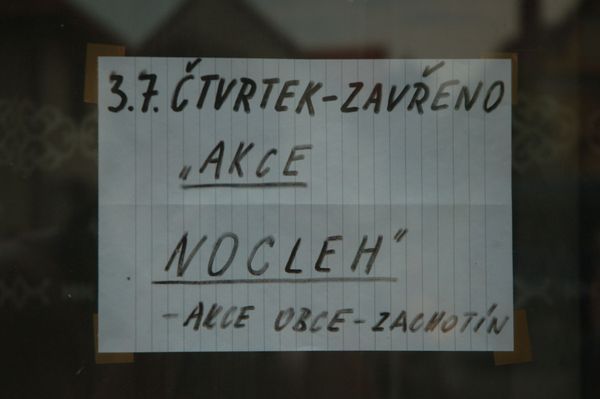 3.7. ČTVRTEK-ZAVŘENO
„AKCE
NOCLEH"
-AKCE OBCE-ZACHOTÍN